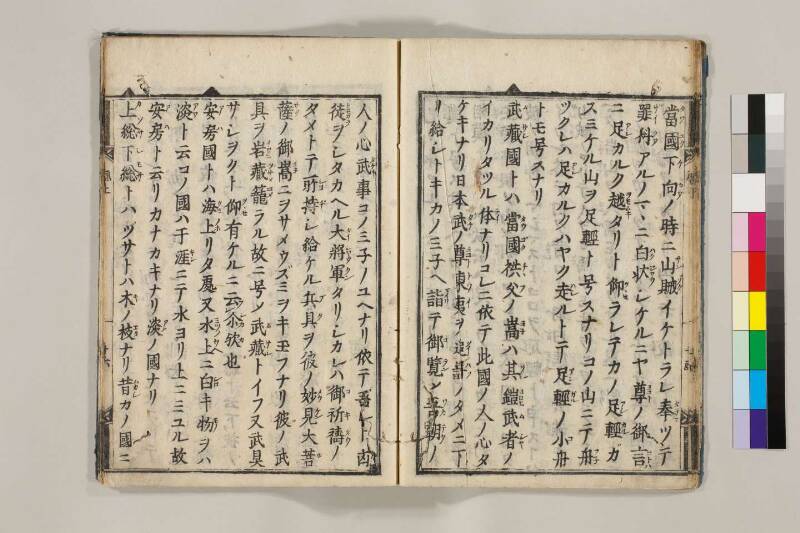 當國下向ノ時ニ山賊イケトラレ奉ツテ
罪科アルノマヽニ白状シケルニヤ尊ノ御言
ニ足カルク越タリト仰ラレテカノ足輕カ
スミケル山ヲ足輕ト号スナリコノ山ニテ舟
ツクレハ足カルクハヤク走ルトテ足輕ノ小舟
トモ号スナリ
武藏國トハ當國秩父ノ嵩ハ其鎧武者ノ
イカリタツル体ナリコレニ依テ此國ノ人ノ心タ
ケキナリ日本武ノ尊東夷ヲ追討ノタメニ下
リ給シトキカノ三子ヘ詣テ御覽シ吾朝ノ
人ノ心武事コノ三子ノユヘナリ依テ吾レト凶
徒ヲシタカヘル大將軍タリシカレハ御祈禱ノ
タメトテ所持シ給ケル兵具ヲ彼ノ妙見大菩
薩ノ御嵩ニヲサメウズミヲキ玉フナリ彼ノ武
具ヲ岩藏籠ラル故ニ号ン武藏トイフ又武具
サシヲクト仰有ケルニ云尓欤也
安房國トハ海上リタ庬又水上ニ白キ物ヲハ
淡ト云コノ國ハ干涯ニテ水ヨリ上ニミユル故
安房ト云リカナカキナリ淡ノ國ナリ
上総下総トハヅサトハ木ノ枝ナリ昔カノ國ニ